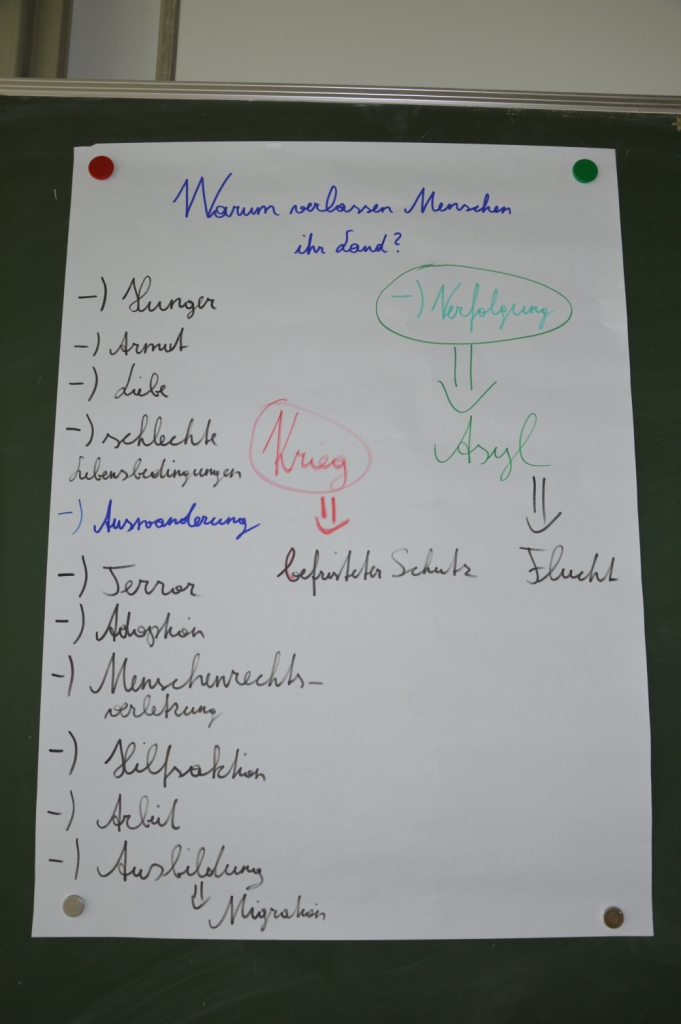 Warum verlassen Menschen
ihr Land?
-) Hunger
-) Armut
-) Liebe
-) schlechte
Lebensbedingungen
-) Auswanderung
-) Terror
-) Adoption
-) Menschenrechts-
verletzung
-) Hilfsaktion
-) Arbeit
-) Ausbildung
⇓ Migration
Krieg
⇓
befristeter Schutz
-) Verfolgung
⇓
Asyl
⇓
Flucht